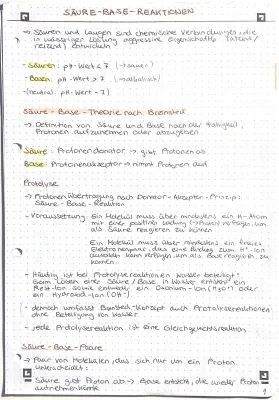 SÄURE-BASE-REAKTIONEN
→ Säuren und Laugen sind chemische Verbindungen, die
in wässriger Lösung aggressive Eigenschaften (ätzend /
reizend) entwickeln
- Säuren: pH-Wert < 7 (→ sauer)
- Basen: pH-Wert > 7 (→ alkalisch)
- (neutral: pH-Wert = 7)
Säure-Base-Theorie nach Brønsted
→ Definition von Säure und Base nach der Fähigkeit,
Protonen aufzunehmen oder abzugeben
Säure: Protonendonator → gibt Protonen ab
Base: Protonenakzeptor → nimmt Protonen auf
Protolyse
→ Protonenübertragung nach Donator-Akzeptor-Prinzip:
Säure-Base-Reaktion
- Voraussetzung: Ein Molekül muss über mindestens ein H-Atom
mit einer positiven Ladung verfügen, um
als Säure reagieren zu können
Ein Molekül muss über mindestens ein freies
Elektronenpaar, das eine Bindung zum H⁺-Ion
ausbilden kann verfügen, um als Base reagieren zu
können
- Häufig ist bei Protolysereaktionen Wasser beteiligt:
Beim Lösen einer Säure / Base in Wasser entsteht ein
Rest-Ion sowie entweder ein Oxonium-Ion (H₃O⁺) oder
ein Hydroxid-Ion (OH⁻)
- dennoch umfasst Brønsted-Konzept auch Protolysereaktionen
ohne Beteiligung von Wasser
- jede Protolysereaktion ist eine Gleichgewichtsreaktion
Säure-Base-Paare
→ Paar von Molekülen, das sich nur um ein Proton
unterscheidet:
Säure gibt Proton ab → Base entsteht, die wieder Proton
aufnehmen könnte
1